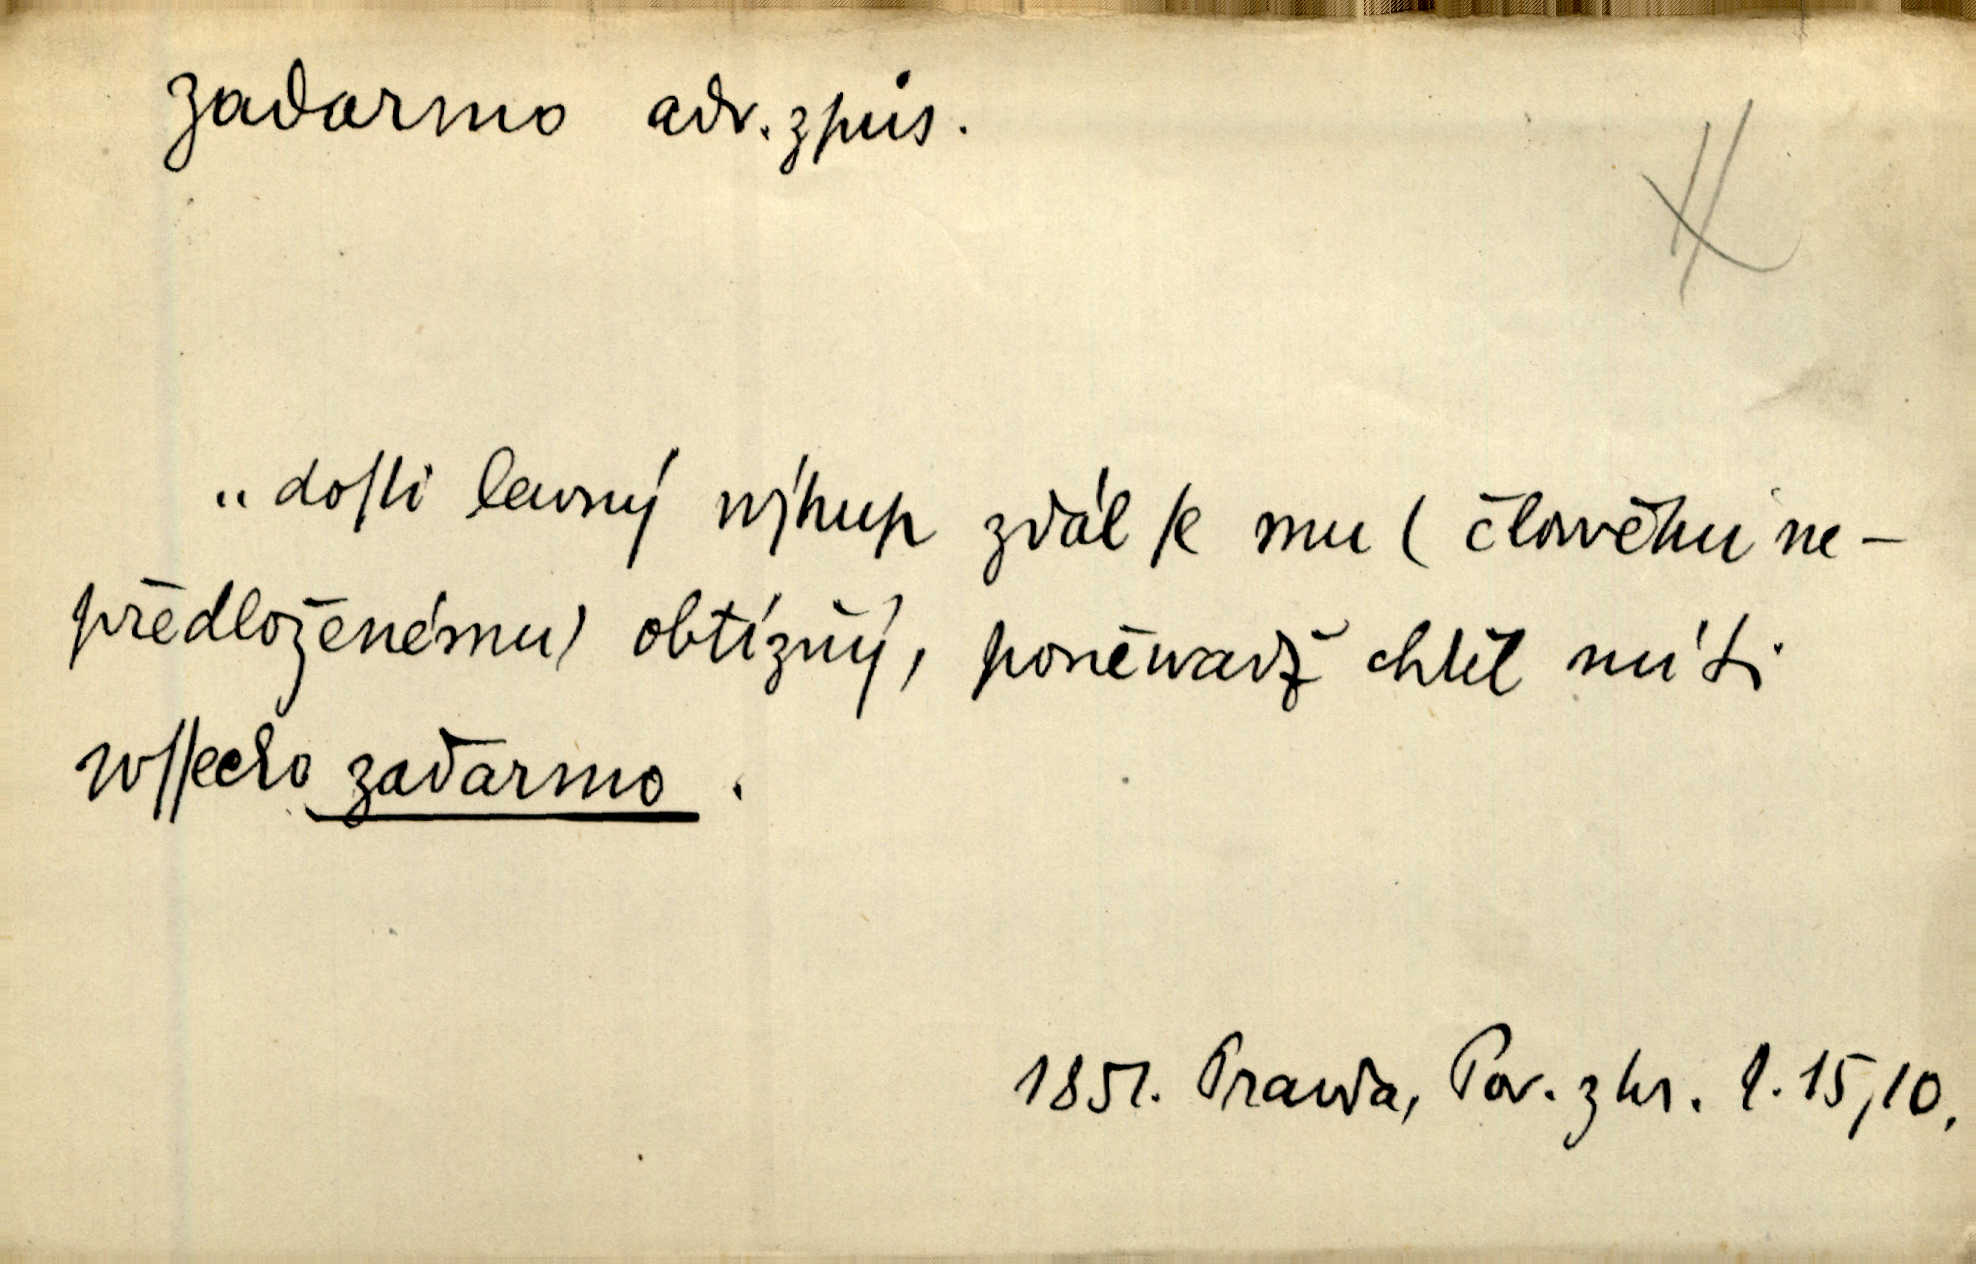 zadarmo adv. způs.
.. doſti lawný wýkup zdál ſe mu ( člowěku ne-
předloženému) obtížný, poněwadž chtěl míti
wſſecko zadarmo .
1851. Prawda, Pov. z kr. I. 15,10.